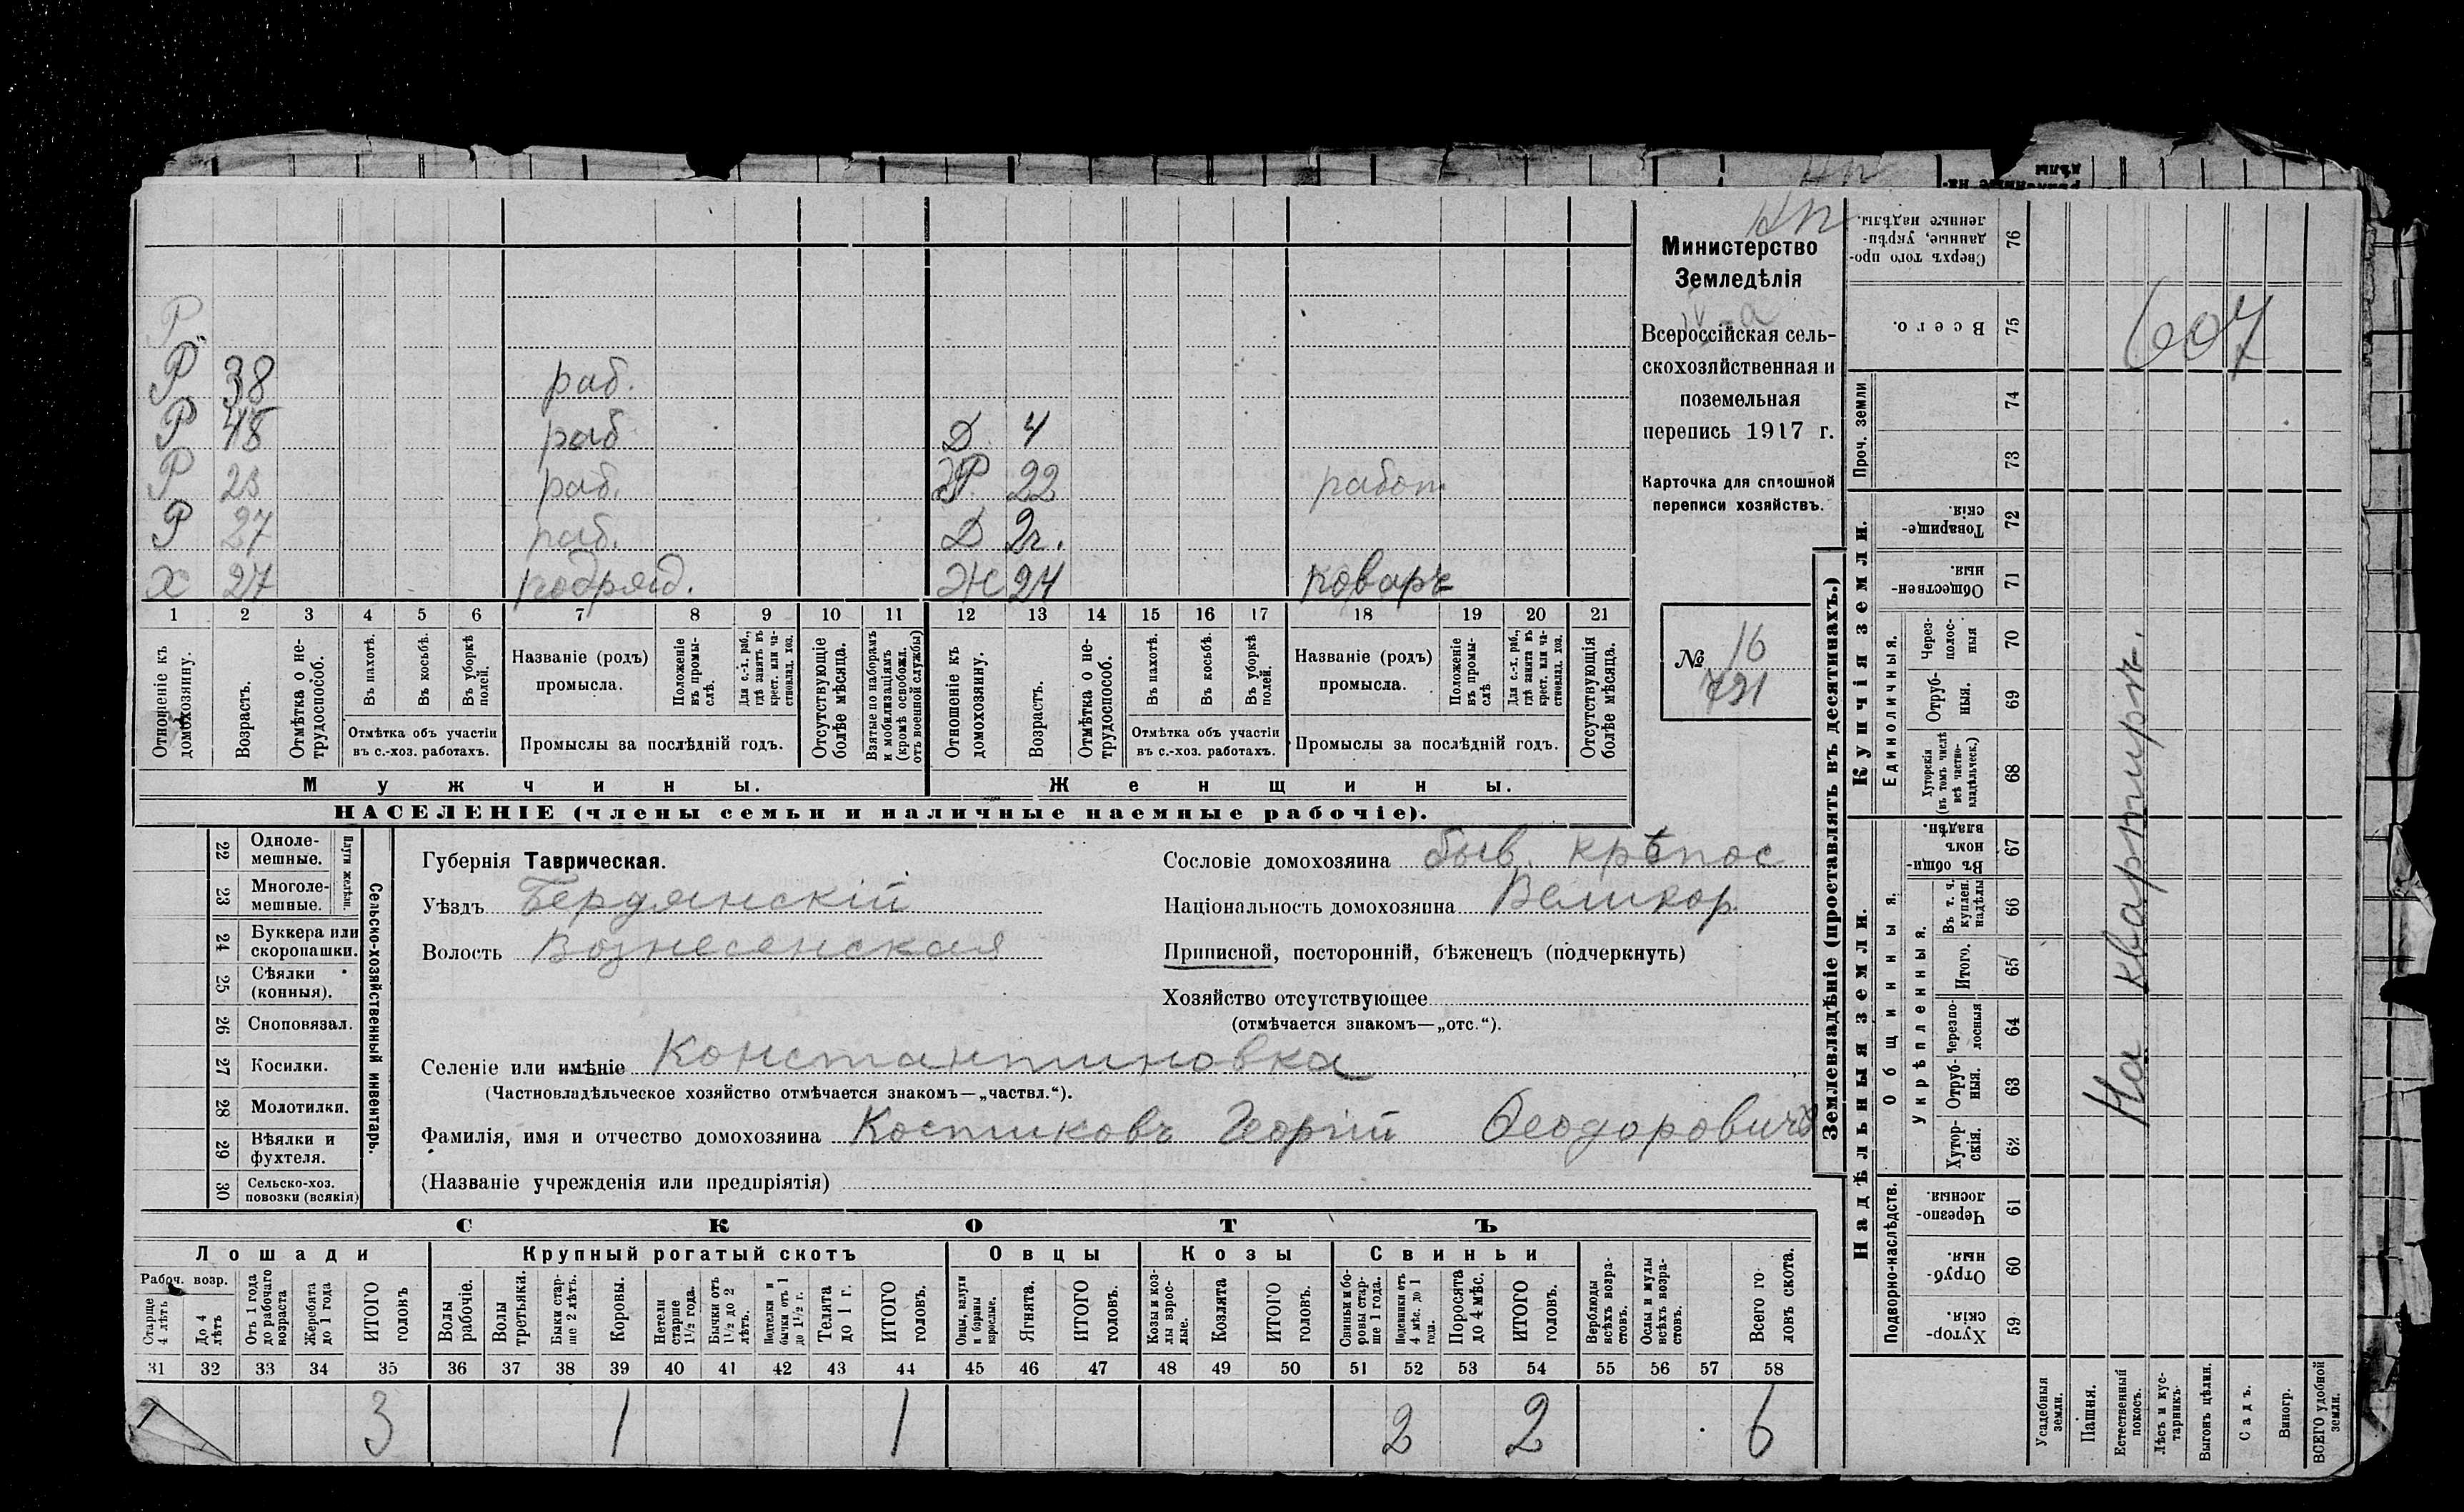 Министерство
Земледѣлія
Всероссійская сель-
скохозяйственная и
поземельная
перепись 1917 г.
Карточка для сплошной
переписи хозяйствъ.
№ 16
721
Р
Р 38 раб.
Р 48 раб Д 4
Р 23 раб. Р 22 работ
Р 27 раб. Д 2г.
х 27 подряд. Ж 24 поваръ
1 2 3 4 5 6 7 8 9 10 11 12 13 14 15 16 17 18 19 20 21
Отношеніе къ домохозяину.
Возрастъ.
Отмѣтка о не-трудоспособ.
Въ пахотѣ.
Въ косьбѣ.
Въ уборкѣ полей.
Отмѣтка объ участіи въ с.-хоз. работахъ.
Названіе (родъ) промысла.
Положеніе въ промы-слѣ.
Для с.-х. раб., гдѣ занятъ въ крест. или ча-стновлад. хоз.
Промыслы за послѣдній годъ.
Отсутствующіе болѣе мѣсяца.
Взятые по наборамъ и мобилизаціямъ (кромѣ освобожд. отъ военной службы)
Отношеніе къ домохозяину.
Возрастъ.
Отмѣтка о не-трудоспособ.
Въ пахотѣ.
Въ косьбѣ.
Въ уборкѣ полей.
Отмѣтка объ участіи въ с.-хоз. работахъ.
Названіе (родъ) промысла.
Положеніе въ промы-слѣ
Для с.-х. раб., гдѣ занята въ крест. или ча-стновлад. хоз.
Промыслы за послѣдній годъ.
Отсутствующія болѣе мѣсяца.
Мужчины. Женщины.
НАСЕЛЕНІЕ (члены семьи и наличные наемные рабочіе).
22 Одноле-мешные.
23 Многоле-мешные.
Плуги желѣзн.
24 Буккера или скоропашки.
25 Сѣялки (конныя).
26 Сноповязал.
27 Косилки.
28 Молотилки.
29 Вѣялки и фухтеля.
30 Сельско-хоз. повозки (всякія)
Сельско-хозяйственный инвентарь.
Губернія Таврическая.
Уѣздъ Бердянскій
Волость Вознесенская
Сословіе домохозяина быв. крѣпос
Національность домохозяина Великор.
Приписной, посторонній, бѣженецъ (подчеркнуть)
Хозяйство отсутствующее
(отмѣчается знакомъ—„отс.“).
Селеніе или имѣніе Константиновка
(Частновладѣльческое хозяйство отмѣчается знакомъ—„частвл.“).
Фамилія, имя и отчество домохозяина Костиковъ Георгій Ѳеодоровичъ
(Названіе учрежденія или предпріятія)
СКОТЪ
Лошади Крупный рогатый скотъ Овцы Козы Свиньи
Рабоч. возр.
Старше 4 лѣтъ
До 4 лѣтъ
Отъ 1 года до рабочаго возраста
Жеребята до 1 года
ИТОГО головъ
Волы рабочіе.
Волы третьяки.
Быки стар-ше 2 лѣтъ.
Коровы.
Нетели старше 1½ года.
Бычки отъ 1½ до 2 лѣтъ.
Подтелки и бычки отъ 1 до 1½ г.
Телята до 1 г.
ИТОГО головъ.
Овцы, валухи и бараны взрослые.
Ягнята.
ИТОГО головъ.
Козы и коз-лы взрос-лые.
Козлята
ИТОГО головъ.
Свиньи и бо-ровы стар-ше 1 года.
Подсвинки отъ 4 мѣс. до 1 года.
Поросята до 4 мѣс.
ИТОГО головъ.
Верблюды всѣхъ возра-стовъ.
Ослы и мулы всѣхъ возра-стовъ.
Всего го-ловъ скота.
31 32 33 34 35 36 37 38 39 40 41 42 43 44 45 46 47 48 49 50 51 52 53 54 55 56 57 58
3 1 1 2 2 6
Землевладѣніе (проставлять въ десятинахъ.)
Надѣльныя земли. Купчія земли. Проч. земли
Подворно-наслѣдств.
Общинныя.
Укрѣпленныя.
Единоличныя.
Хутор-скія. 59
Отруб-ныя. 60
Черезпо-лосныя. 61
Хутор-скія. 62
Отруб-ныя. 63
Черезпо-лосныя 64
Итого. 65
Въ т. ч. куплен. надѣлы 66
Въ общи-номъ владѣн. 67
Хуторскія (въ томъ числѣ всѣ частно-владѣльческ.) 68
Отруб-ныя. 69
Через-полос-ныя 70
Обществен-ныя. 71
Товарище-скія. 72
73
74
Всего. 75
Сверхъ того про-данные, укрѣп-ленные надѣлы. 76
Усадебныя земли.
Пашня.
Естественный покосъ.
Лѣсъ и кус-тарникъ.
Выгонъ цѣлин.
Садъ.
Виногр.
ВСЕГО удобной земли.
На квартирѣ.
607